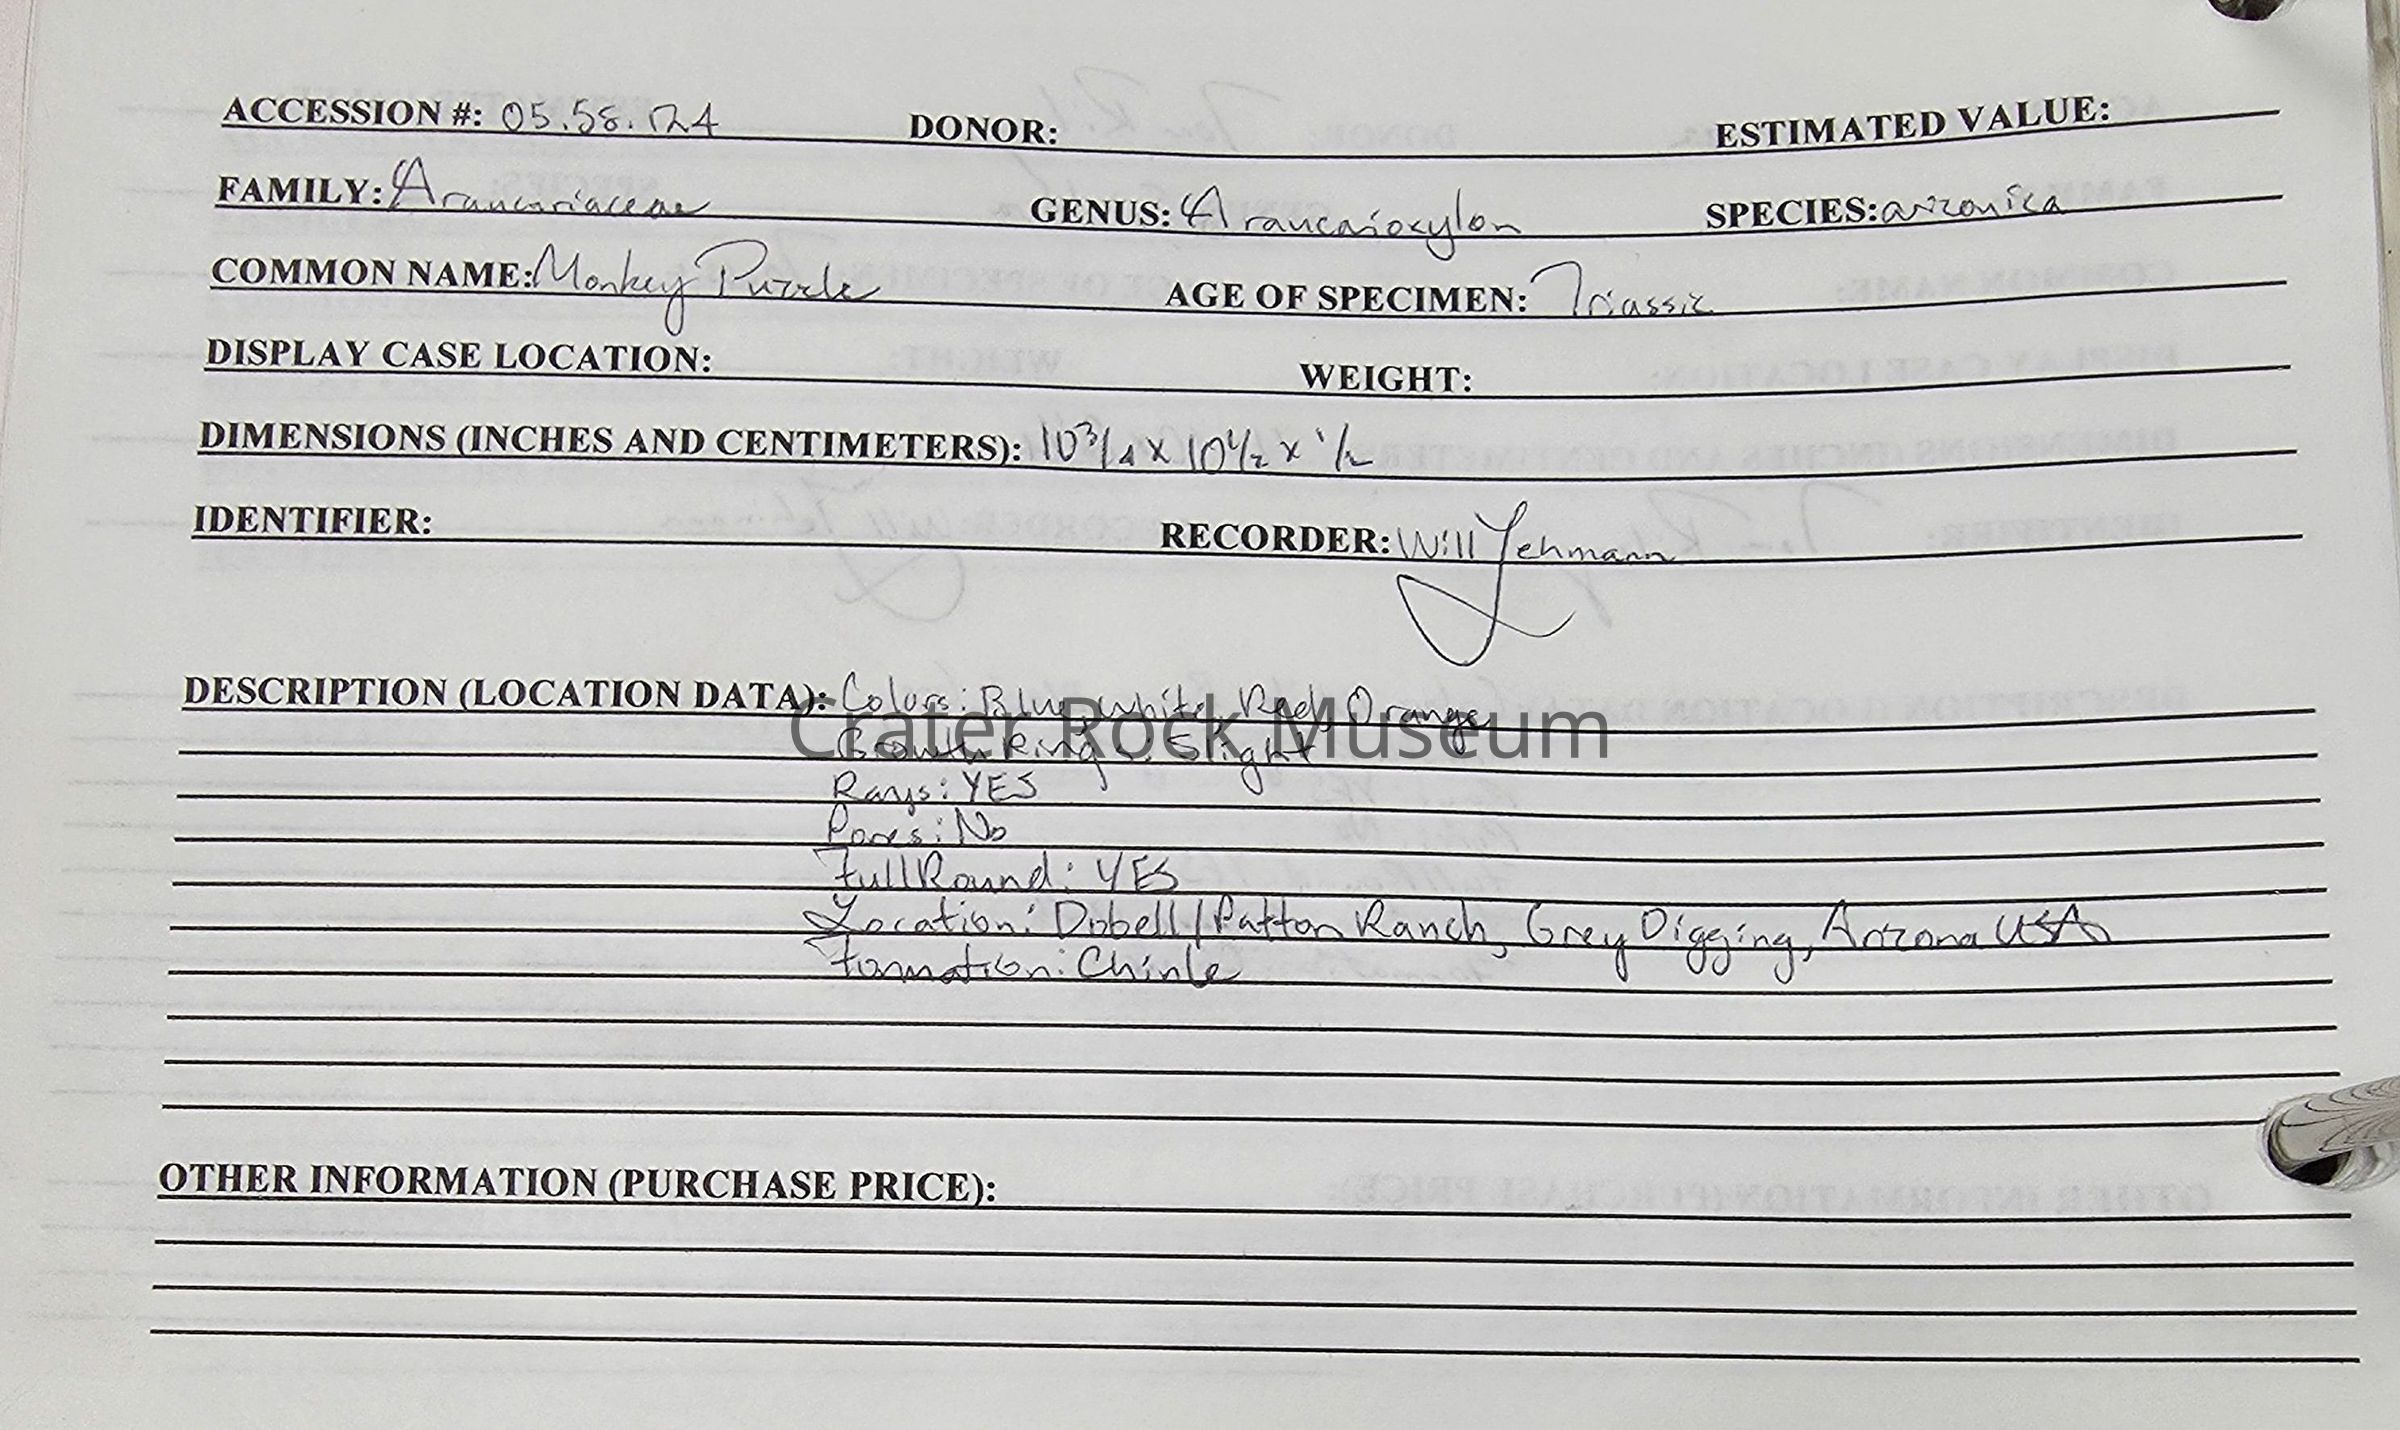 ACCESSION #: 05.58.124 DONOR: ESTIMATED VALUE:
FAMILY: Araucariaceae GENUS: Araucarioxylon SPECIES: arizonica
COMMON NAME: Monkey Puzzle AGE OF SPECIMEN: Triassic
DISPLAY CASE LOCATION: WEIGHT:
DIMENSIONS (INCHES AND CENTIMETERS): 10 3/4 x 10 1/2 x 1/2
IDENTIFIER: RECORDER: Will Lehmann
DESCRIPTION (LOCATION DATA): Colors: Blue, white, Red, Orange
Crater Rock Museum
Growth Rings: Slight
Rays: YES
Pores: No
Full Round: YES
Location: Dobell/Patton Ranch, Grey Digging, Arizona USA
Formation: Chinle
OTHER INFORMATION (PURCHASE PRICE):